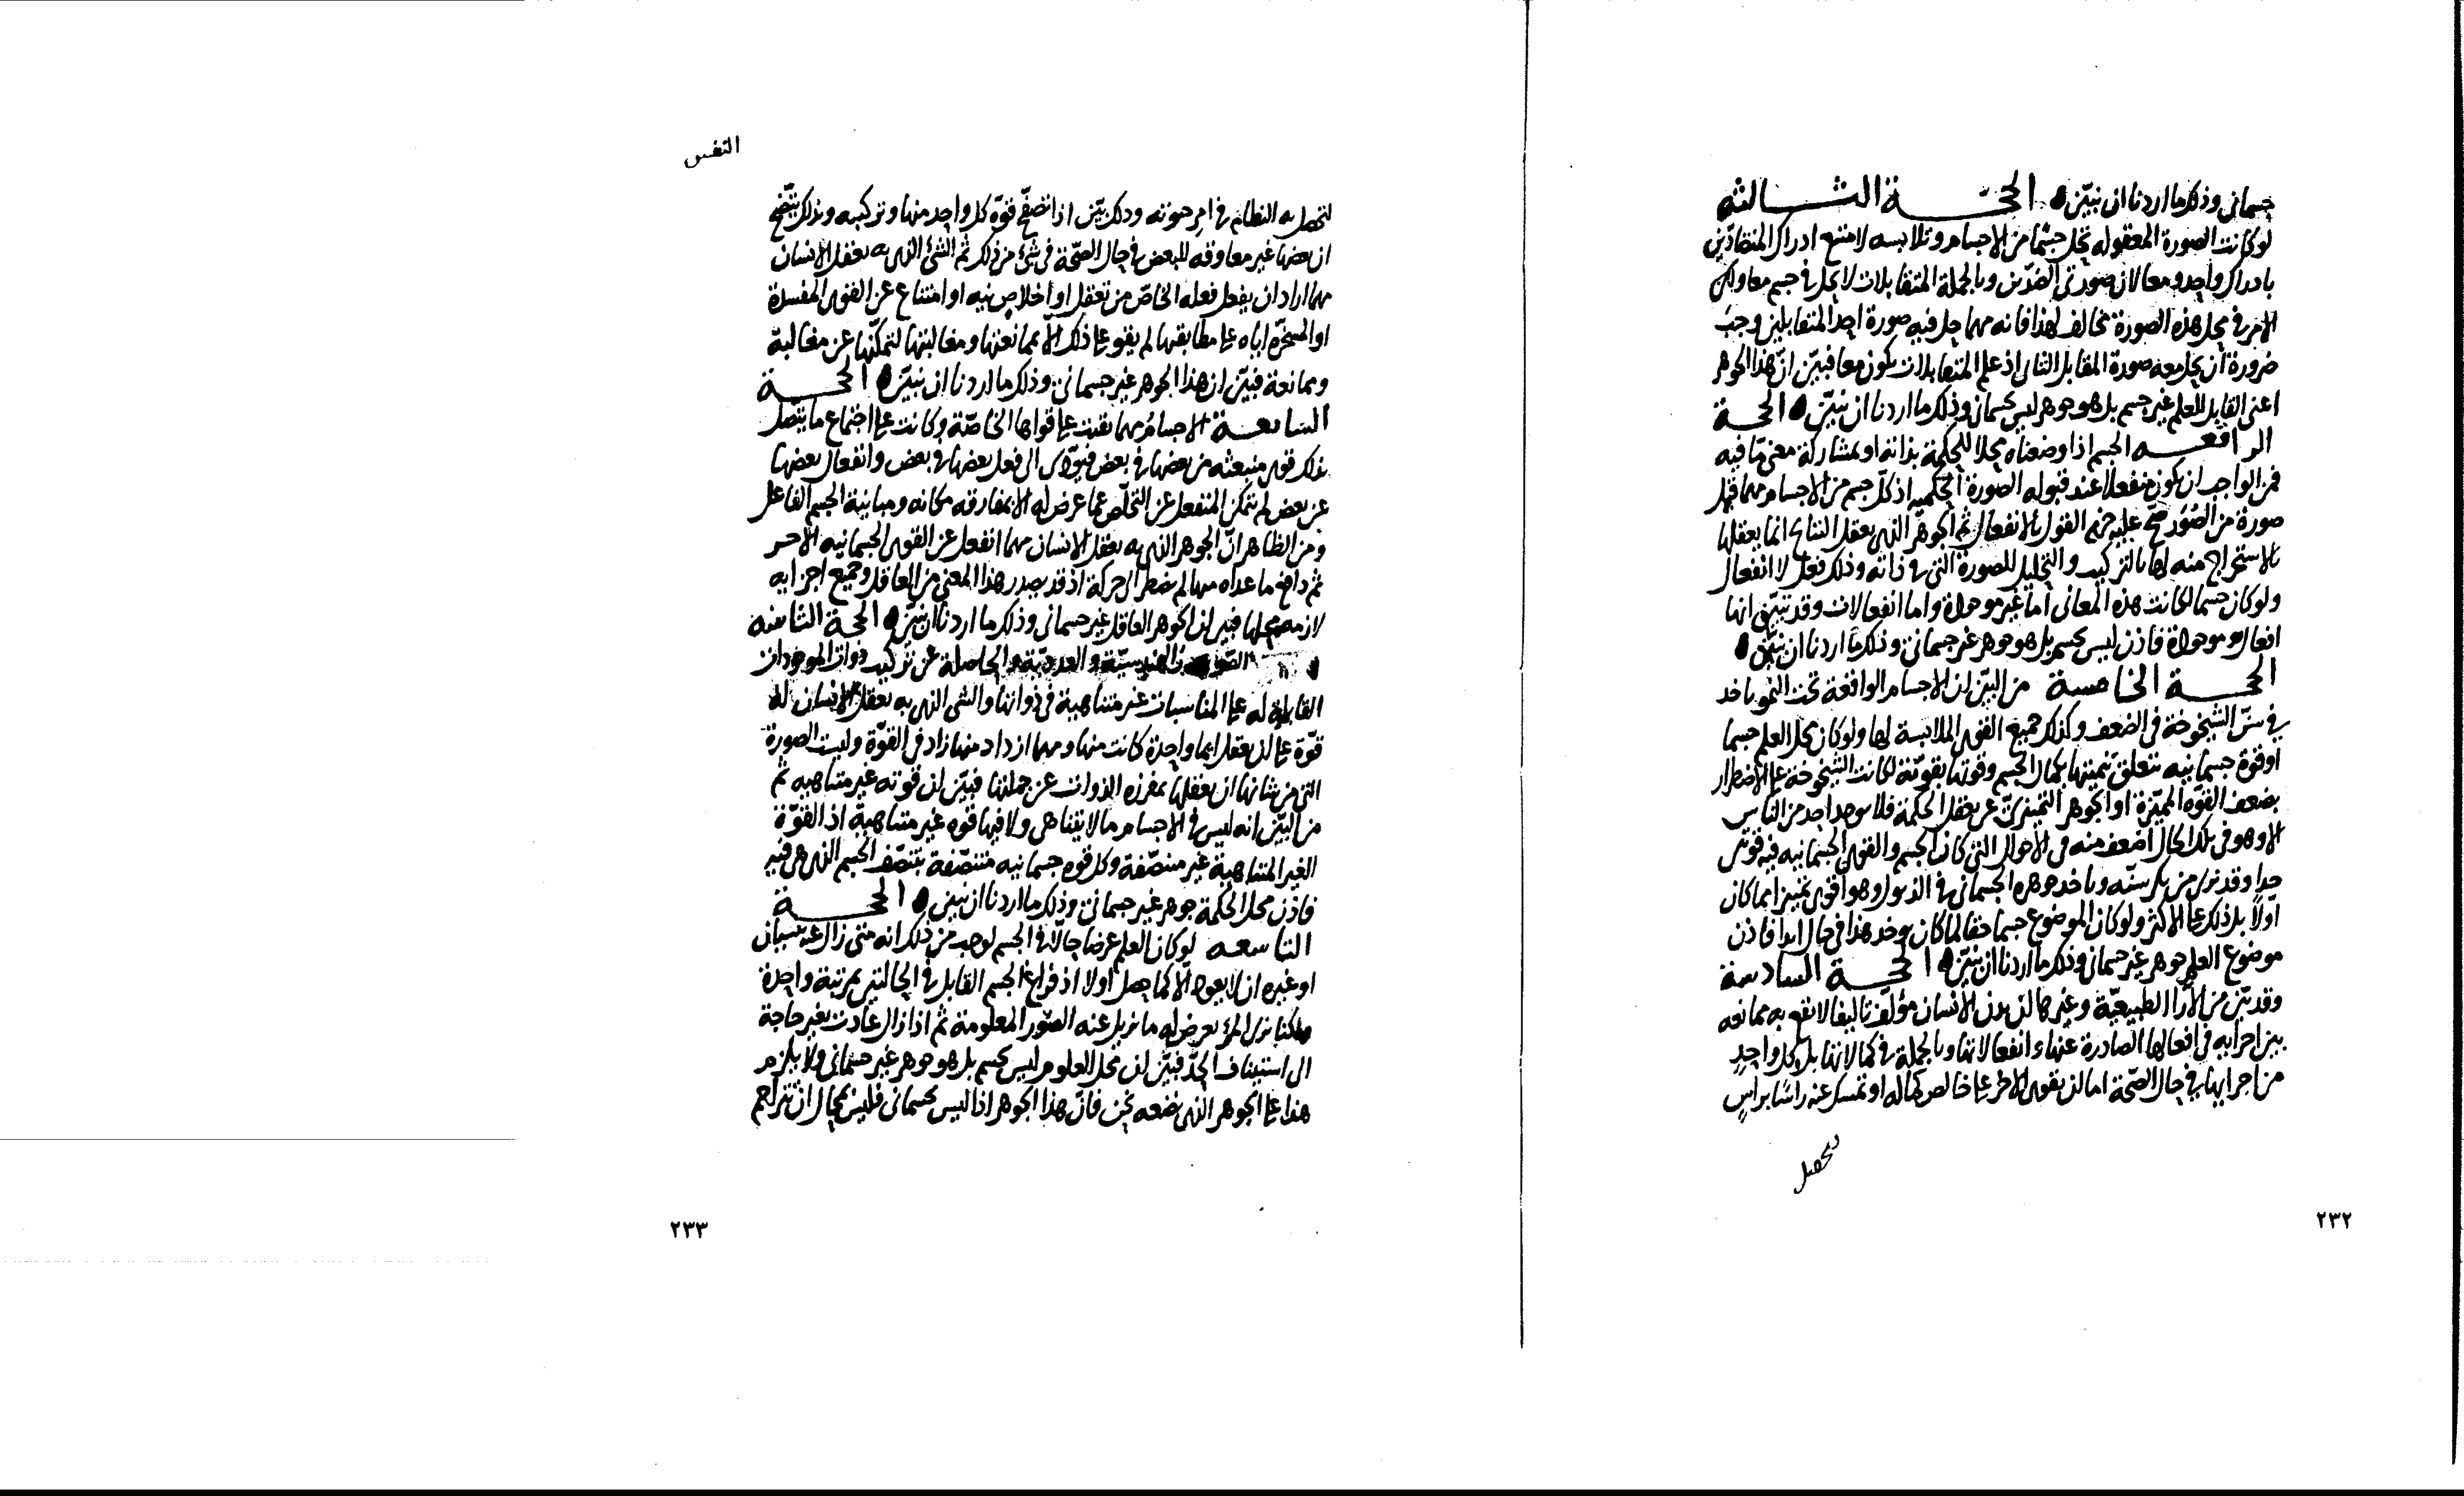 جسمانى وذلك ما اردنا ان نبيّن الحجّة الثالثة
لو كانت الصورة المعقوله تحل جسمًا من الاجسام وتلابسه لامتنع ادراك المتضادّين
بادراك واحد ومعا لان صورتى الضدّين وبالجملة المتقابلات لا تحل فى جسم معا ولكن
الامر فى محل هذه الصورة مخالف لهذا فانه مهما حل فيه صورة احد المتقابلين وجب
ضرورة ان يحل معه صورة المقابل الثانى اذ علم المتقابلات يكون معا فبيّن انّ هذا الجوهر
اعنى القابل للعلم غير جسم بل هو جوهر ليس بجسمانى وذلك ما اردنا ان نبيّن الحجة
الرابعه الجسم اذا وضعناه محلا للحكمة بذاته او بمشاركة معنى ما فيه
فمن الواجب ان يكون منفعلا عند قبوله الصورة الحكميه اذ كلّ جسم من الاجسام مهما قبل
صورة من الصُوَر صحّ عليه حزم القول بالانفعال ثم الجوهر الذى يعقل النتائج انما يعقلها
بالاستخراج منه لها بالتركيب والتحليل للصورة التى فى ذاته وذلك فعل لا انفعال
ولو كان جسما لكانت هذه المعانى اما غير موجودة واما انفعالات وقد تبيّن انها
افعال موجودة فاذن ليس بجسم بل هو جوهر غير جسمانى وذلك ما اردنا ان نبيّن
الحجة الخامسة من البيّن ان الاجسام الواقعة تحت النمو تاخذ
فى سنّ الشيخوخة فى الضعف وكذلك جميع القوى الملابسة لها ولو كان محل العلم جسما
او قوة جسمانيه تتعلق تتميتها بكمال الجسم وقوتها بقوّته لكانت الشيخوخة على الاضطرار
بضعف القوّه المميّزة او الجوهر التمييزىّ عن تعقل الحكمة فلا يوجد احد من الناس
الا وهو فى تلك الحال اضعف منه فى الاحوال التى كان الجسم والقوى الجسمانيه فيه قويّين
جدا وقد نرى من يكبر سنّه وياخذ جوهره الجسمانى فى الذبول وهو اقوى تمييزا مما كان
اولا بل ذلك على الاكثر ولو كان الموضوع جسما حقا لما كان يوجد هذا فى حال ابدا فاذن
موضوع العلم جوهر غير جسمانى وذلك ما اردنا ان نبيّن الحجة السادسة
وقد بيّن من الآراا الطبيعيّة وغيرها ان بدن الانسان مؤلف تاليفا لا تقع به ممانعه
بين اجزايه فى افعالها الصادرة عنها وانفعالاتها وبالجملة فى كمالاتها بل كل واحدٍ
من اجزايها فى حال الصّحة اما ان يقوى الاخر على خالص كماله او تمسك عنه راسًا براسٍ
لتحصل
٢٣٢
النفس
لتحصل به النظام فى امر حيوته وذلك بيّن اذا تصفّح قوّة كل واحد منها وتركيبه وبذلك يتّضح
ان بعضها غير معاوقه للبعض فى حال الصّحة فى شئ من ذلك ثم الشئ الذى به يعقل الانسان
مهما اراد ان يفعل فعله الخاصّ من تعقل او اخلاص نيه او امتناع عن القوى المفسدة
او المسخّره اياه على مطابقتها لم يقو على ذلك الا بممانعتها ومغالبتها لتمكّنها عن مغالبة
وممانعة فبيّن ان هذا الجوهر غير جسمانى وذلك ما اردنا ان نبيّن الحجة
السابعة الاجسام مهما بقيت على قواها الخاصّة وكانت على اجتماع ما يتصل
بذلك قوى منبعثه من بعضها فى بعض فتؤدّى الى فعل بعضها فى بعض وانفعال بعضها
عن بعض لم يتمكن المنفعل عن التخلّص عما عرض له الا بمفارقه مكانه ومباينة الجسم الفاعل
ومن الظاهر انّ الجوهر الذى به يعقل الانسان مهما انفعل عن القوى الجسمانيه الاخر
ثم دافع ما عداه منها لم يضطر الى حركة اذ قد يصدر هذا المعنى من العاقل وجميع اجزايه
لازمه محلها فبين ان الجوهر العاقل غير جسمانى وذلك ما اردنا ان نبيّن الحجة الثامنه
الصور الهندسيّة والعدديّة والحاصلة عن تركيب ذوات الموجودات
القابلة له على المناسبات غير متناهية فى ذواتها والشى الذى به يعقل الانسان له
قوّة على ان يعقل ايما واحدة كانت منها ومهما ازداد منها زاد فى القوّة وليست الصورة
التى من شانها ان يعقلها بمفرزه الذوات عن جملتها فبيّن ان قوته غير متناهيه ثم
من البيّن انه ليس فى الاجسام ما لا يتناهى ولا فيها قوه غير متناهية اذ القوّة
الغير المتناهية غير منتصّفة وكل قوه جسمانيه متنصّفة بتنصّف الجسم الذى هى فيه
فاذن محل الحكمة جوهر غير جسمانى وذلك ما اردنا ان نبيّن الحجة
التاسعه لو كان العلم عرضا حالّا فى الجسم لوجب من ذلك انه متى زال عنه بنسيان
او غيره ان لا يعود الا كما حصل اولا اذ فراغ الجسم القابل فى الحالتين بمرتبة واحدة
لكنا نرى المرء يعرض له ما يزيل عنه الصّور المعلومة ثم اذا زال عادت بغير حاجة
الى استيناف الجدّ فبيّن ان محل العلوم ليس بجسم بل هو جوهر غير جسمانى ولا يلزم
هذا على الجوهر الذى نضعه نحن فان هذا الجوهر اذا ليس بجسمانى فليس بمحال ان تتزاحم
٢٣٣